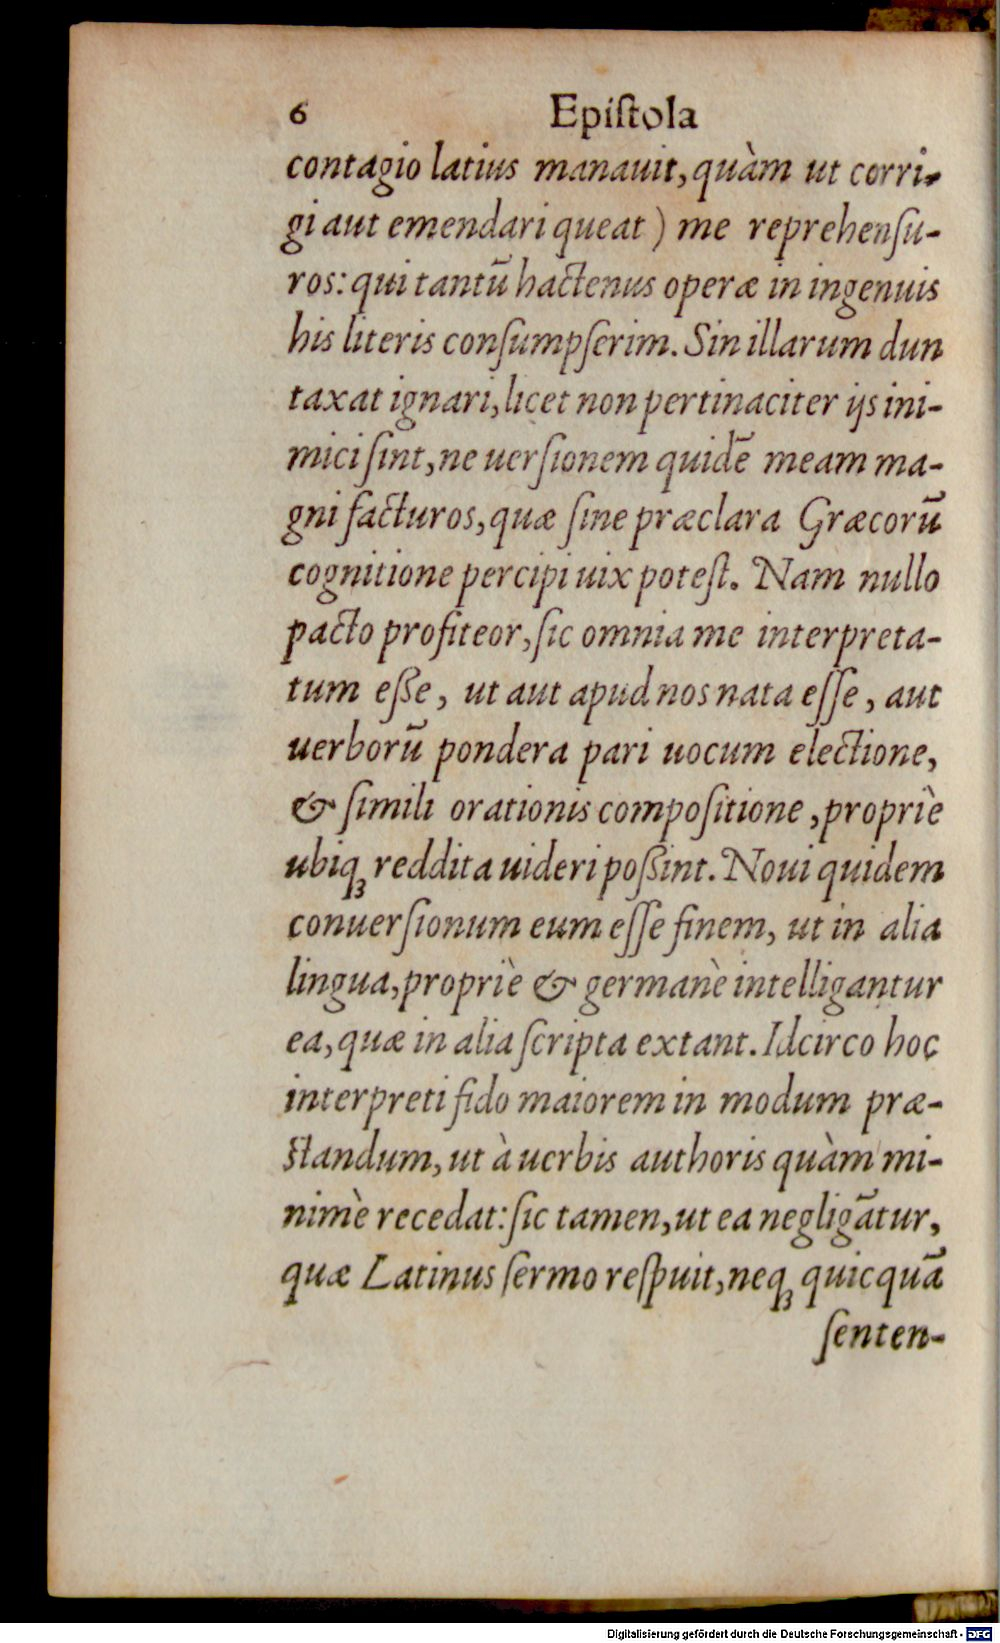 6 Epiſtola
contagio latius manauit, quàm ut corri-
gi aut emendari queat) me reprehenſu-
ros: qui tantũ hactenus operæ in ingenuis
his literis conſumpſerim. Sin illarum dun
taxat ignari, licet non pertinaciter ijs ini-
mici ſint, ne uerſionem quidẽ meam ma-
gni facturos, quæ ſine præclara Græcorũ
cognitione percipi uix poteſt. Nam nullo
pacto profiteor, ſic omnia me interpreta-
tum eße, ut aut apud nos nata eſſe, aut
uerborũ pondera pari uocum electione,
& ſimili orationis compoſitione, propriè
ubiq; reddita uideri poßint. Noui quidem
conuerſionum eum eſſe finem, ut in alia
lingua, propriè & germanè intelligantur
ea, quæ in alia ſcripta extant. Idcirco hoc
interpreti fido maiorem in modum præ-
ſtandum, ut à uerbis authoris quàm mi-
nimè recedat: ſic tamen, ut ea negligãtur,
quæ Latinus ſermo reſpuit, neq; quicquã
ſenten-
Digitalisierung gefördert durch die Deutsche Forschungsgemeinschaft - DFG